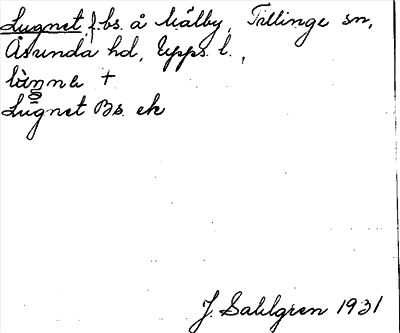 Lugnet, f.bs. å Mälby, Tillinge sn,
Åsunda hd, Upps. l.,
Lugnet Bs. ek
J. Sahlgren 1931